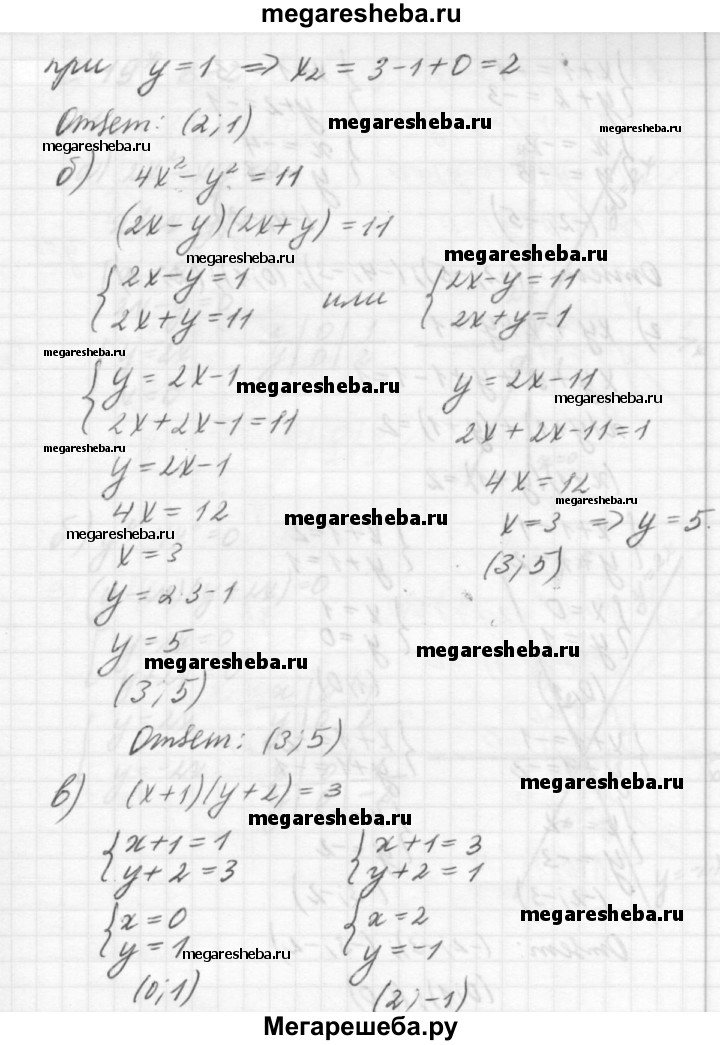 megaresheba.ru
при y = 1 ⇒ x₂ = 3 - 1 + 0 = 2
Ответ: (2; 1)
megaresheba.ru megaresheba.ru
megaresheba.ru
б) 4x² - y² = 11
(2x - y)(2x + y) = 11
megaresheba.ru megaresheba.ru
{ 2x - y = 1 или { 2x - y = 11
{ 2x + y = 11 { 2x + y = 1
megaresheba.ru
{ y = 2x - 1 y = 2x - 11
megaresheba.ru megaresheba.ru
{ 2x + 2x - 1 = 11 2x + 2x - 11 = 1
megaresheba.ru
y = 2x - 1 4x = 12
megaresheba.ru
4x = 12 x = 3 ⇒ y = 5.
megaresheba.ru
megaresheba.ru
x = 3 (3; 5)
y = 2·3 - 1
y = 5
megaresheba.ru megaresheba.ru
(3; 5)
Ответ: (3; 5)
в) (x + 1)(y + 2) = 3
megaresheba.ru
megaresheba.ru
{ x + 1 = 1 { x + 1 = 3
{ y + 2 = 3 { y + 2 = 1
{ x = 0 { x = 2
megaresheba.ru
{ y = 1 { y = -1
megaresheba.ru
(0; 1) (2; -1)
Мегарешеба.ру